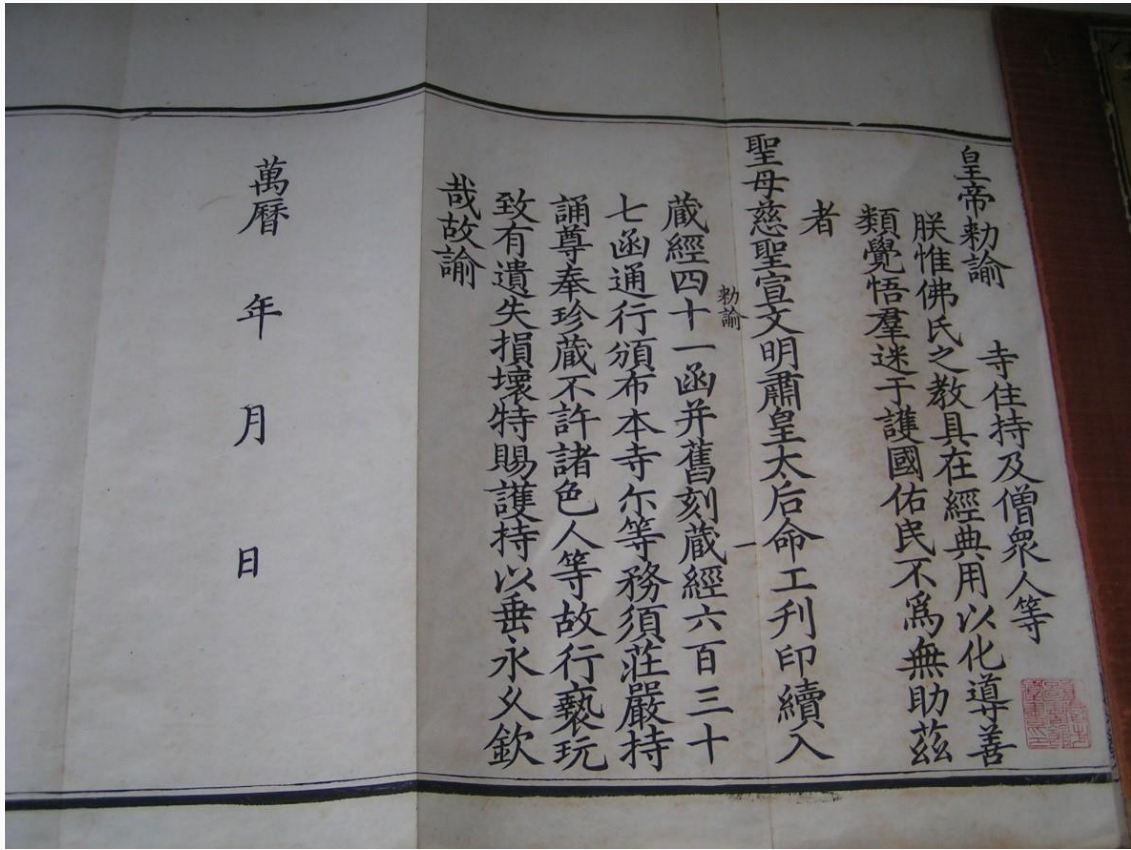 皇帝勑諭　寺住持及僧衆人等
朕惟佛氏之教具在經典用以化導善
類覺悟羣迷于護國佑民不爲無助茲
者
聖母慈聖宣文明肅皇太后命工刋印續入
勑諭 一
藏經四十一函并舊刻藏經六百三十
七函通行頒布本寺尓等務須荘嚴持
誦尊奉珍藏不許諸色人等故行褻玩
致有遺失損壞特賜護持以垂永乆欽
哉故諭
萬曆 年 月 日